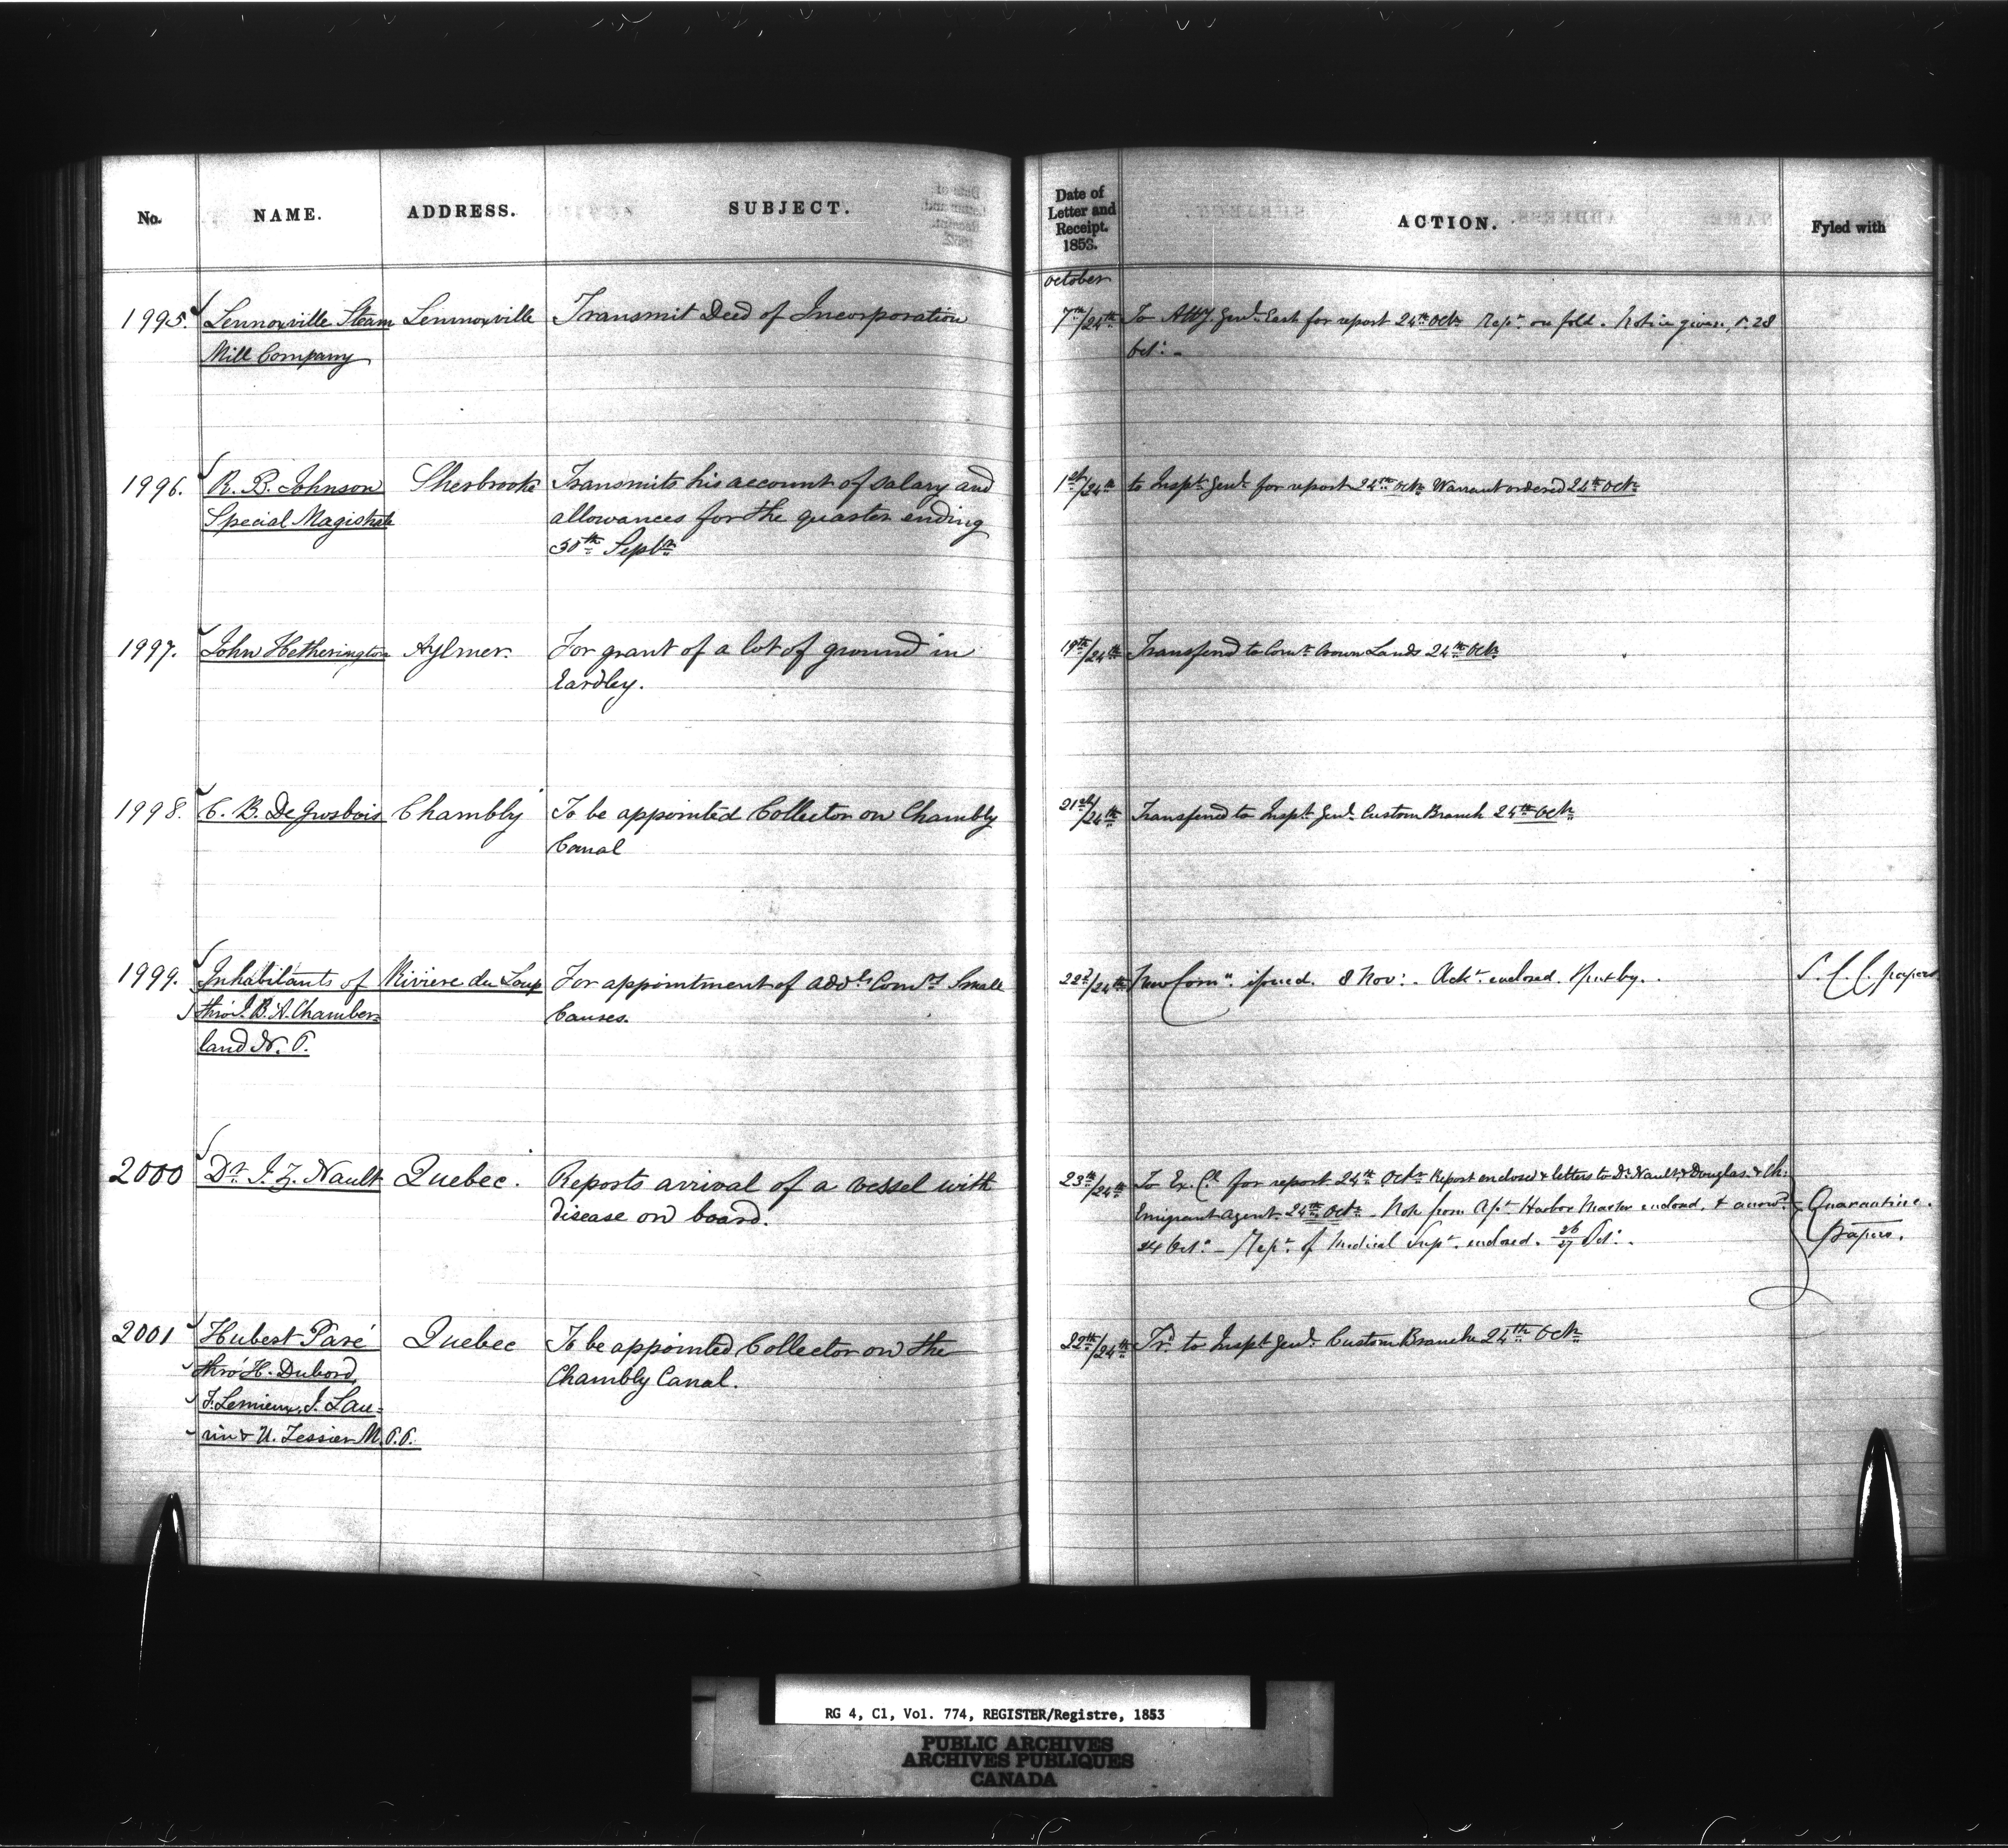 No. NAME. ADDRESS. SUBJECT.
Date of
Letter and
Receipt.
1853.
ACTION. Fyled with
October
1995. Lennoxville Steam Lennoxville Transmit Deed of Incorporation 7th/24th To Atty. Genl. East for report 24th Octr. Rept. on fold. Notice given, 28
Mill Company Oct:
1996. R. B. Johnson Sherbrooke Transmits his account of salary and 1st/24th to Inspt. Genl. for report 24th Octr. Warrant ordered 24th Octr.
Special Magistrate allowances for the quarter ending
30th Septr.
1997. John Hetherington Aylmer. For grant of a lot of ground in 19th/24th Transferd to Comr. Crown Lands 24th Octr.
Eardley.
1998. C. B. De Grosbois Chambly To be appointed Collector on Chambly 21st/24th Transferred to Inspt. Genl. Custom Branch 24th Octr.
Canal
1999. Inhabitants of Riviere du Loup For appointment of addl. Comrs. Small 22d/24th New Comn. issued. 8 Nov: Ackt. enclosed. Put by. S. C. C. papers
thro' J. B. A. Chamber- Causes.
land N. P.
2000 Dr. J. Z. Nault Quebec. Reports arrival of a vessel with 23th/24th To Ex. Cl. for report 24th Octr. Report enclosed & letters to Dr. Nault, & Douglas. & Ch:
disease on board. Emigrant Agent. 24th Octr. Note from Harbor Master enclosed, & answd. Quarantine
24 Oct: Rept. of Medical Supt. enclosed. 26/27 Oct: Papers.
2001 Hubert Paré Quebec To be appointed Collector on the 22th/24th Trd. to Inspt. Genl. Custom Branch 24th Octr.
thro' H. Dubord, Chambly Canal.
F. Lemieux, J. Lau-
rin & U. Tessier M.P.P.
RG 4, C1, Vol. 774, REGISTER/Registre, 1853
PUBLIC ARCHIVES
ARCHIVES PUBLIQUES
CANADA